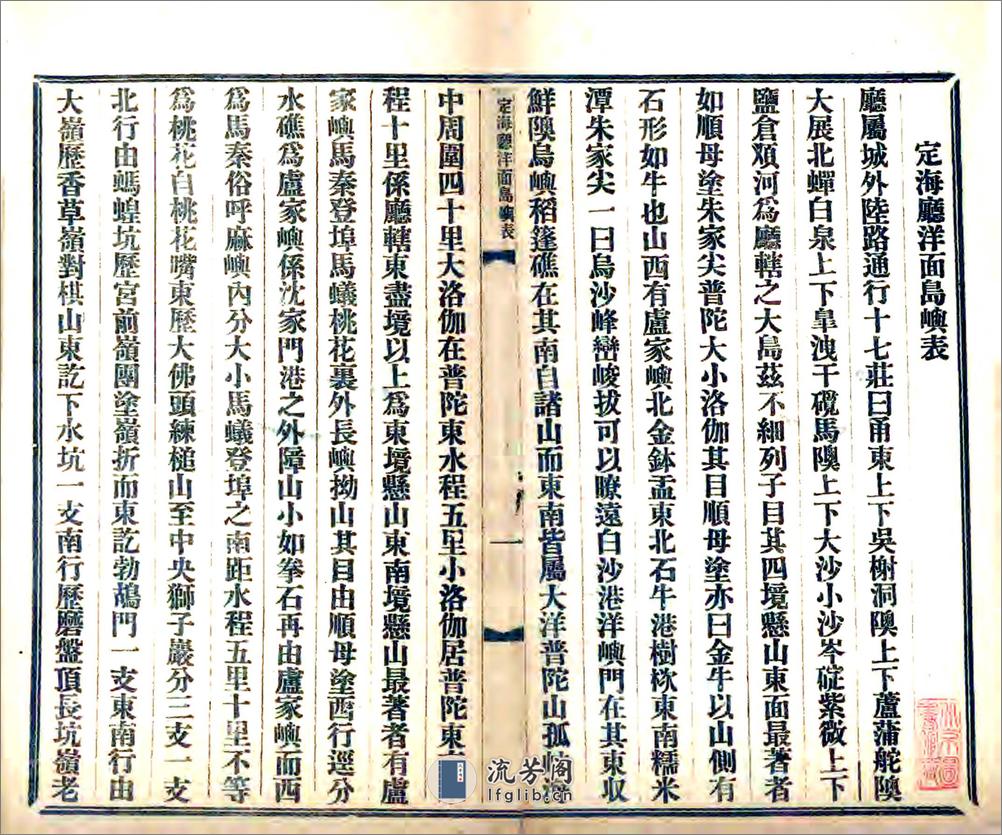 定海廳洋面島嶼表
廳屬城外陸路通行十七莊曰甬東上下吳榭洞隩上下蘆蒲舵隩
大展北蟬白泉上下臯洩干𥗽馬隩上下大沙小沙岑碇紫微上上下
鹽倉頒河爲廳轄之大島茲不細列子目其四境懸山東面最著者
如順母塗朱家尖普陀大小洛伽其目順母塗亦曰金牛以山側有
石形如牛也山西有盧家嶼北金鉢盂東北石牛港樹杴東南糯米
潭朱家尖一曰烏沙峰巒峻拔可以瞭遠白沙港洋嶼門在其東収
鮮隩烏嶼稻篷礁在其南自諸山而東南皆屬大洋普陀山孤峙
中周圍四十里大洛伽在普陀東水程五里小洛伽居普陀東
程十里係廳轄東盡境以上爲東境懸山東南境懸山最著者有盧
家嶼馬秦登埠馬蟻桃花裏外長嶼拗山其目由順母塗西行逕分
水礁爲盧家嶼係沈家門港之外障山小如拳石再由盧家嶼而西
爲馬秦俗呼麻嶼內分大小馬蟻登埠之南距水程五里十里不等
爲桃花白桃花嘴東歷大佛頭練槌山至中央獅子巖分三支一支
北行由螞蝗坑歷宮前嶺團塗嶺折而東訖勃鴣門一支東南行由
大嶺歷香草嶺對棋山東訖下水坑一支南行歷磨盤頂長坑嶺老
定海廳洋面島嶼表
一
流芳阁
lfglib.cn